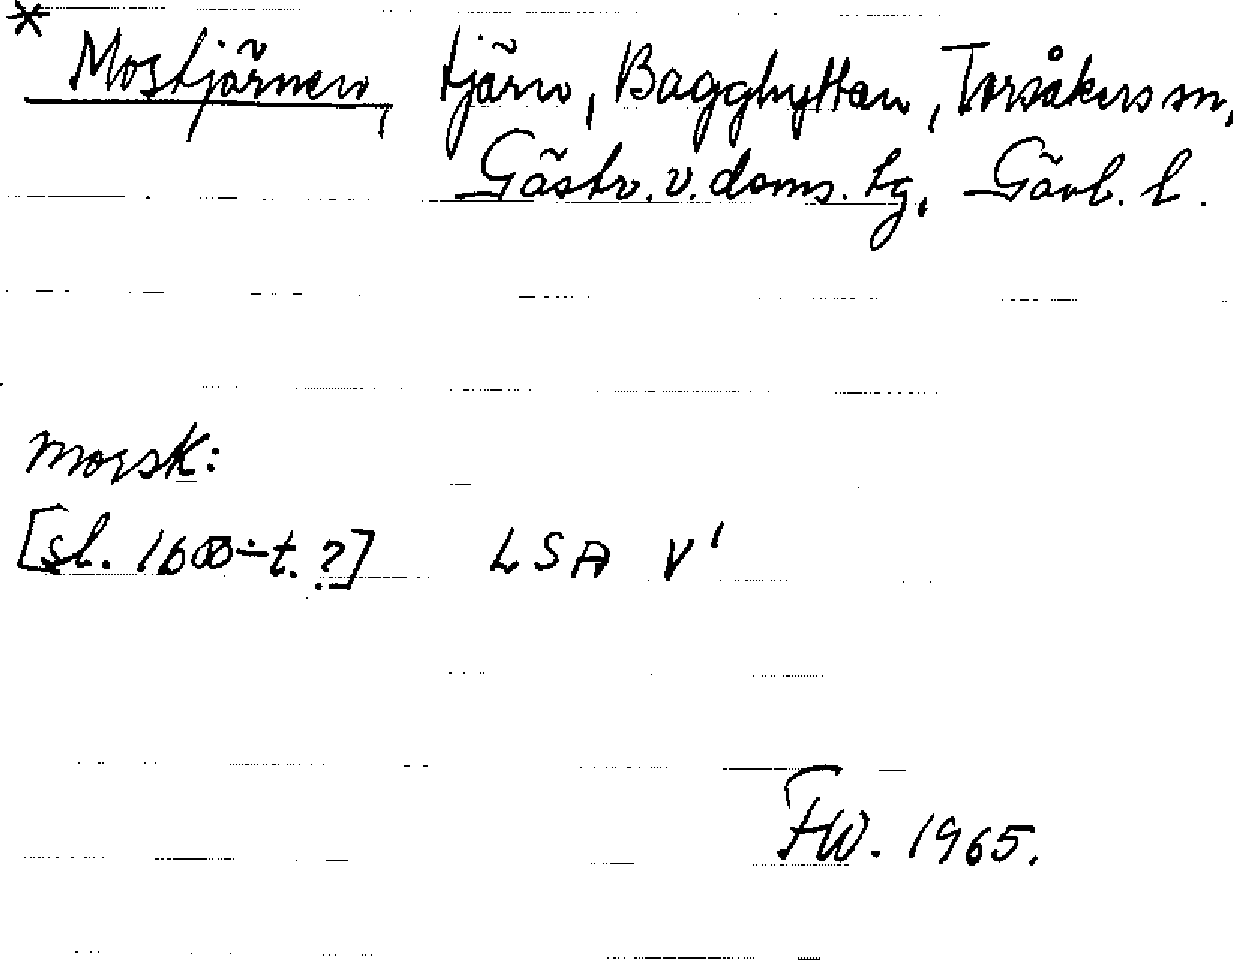 * Mostjärnen, tjärn, Bagghyttan, Torsåkers sn,
Gästr. v. doms. lg, Gävl. l.
morsk:
[sl. 1600-t.?] LSA V¹
FW. 1965.